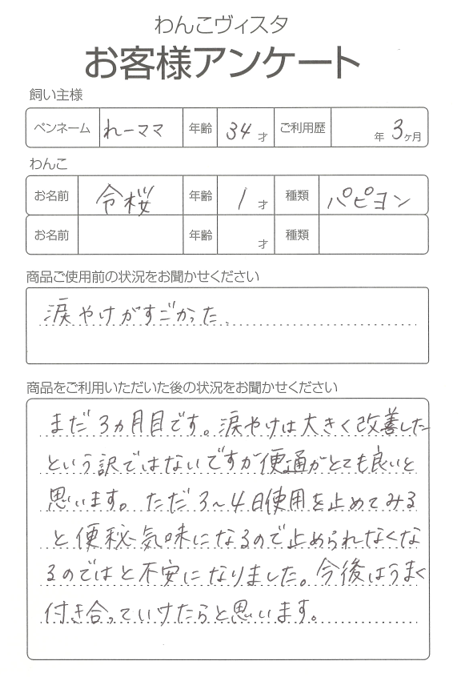 わんこヴィスタ
お客様アンケート
飼い主様
ペンネーム れーママ 年齢 34 才 ご利用歴 年 3 ヶ月
わんこ
お名前 令桜 年齢 1 才 種類 パピヨン
お名前 年齢 才 種類
商品ご使用前の状況をお聞かせください
涙やけがすごかった。
商品をご利用いただいた後の状況をお聞かせください
まだ3ヵ月目です。涙やけは大きく改善した
という訳ではないですが便通がとても良いと
思います。ただ3〜4日使用を止めてみる
と便秘気味になるので止められなくな
るのではと不安になりました。今後はうまく
付き合っていけたらと思います。